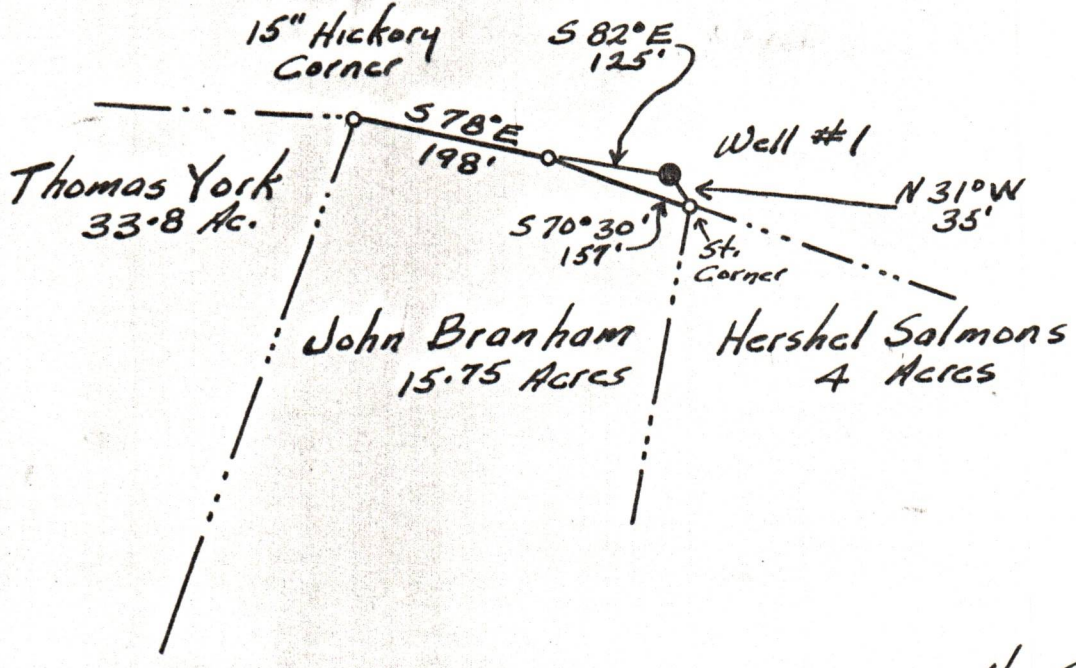 15" Hickory
Corner
S 82° E
125'
S 78° E
198'
Well #1
Thomas York
33.8 Ac.
N 31° W
35'
S 70° 30'
157'
St.
Corner
John Branham
15.75 Acres
Hershel Salmons
4 Acres